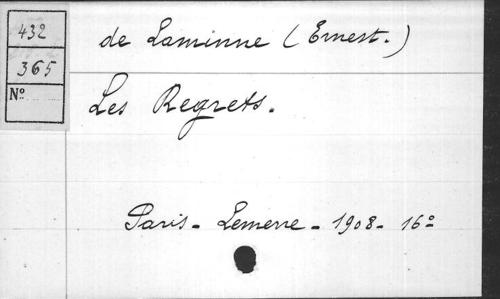 432
365
Nº
de Laminne (Ernest.)
Les Regrets.
Paris - Lemerre - 1908 - 16º